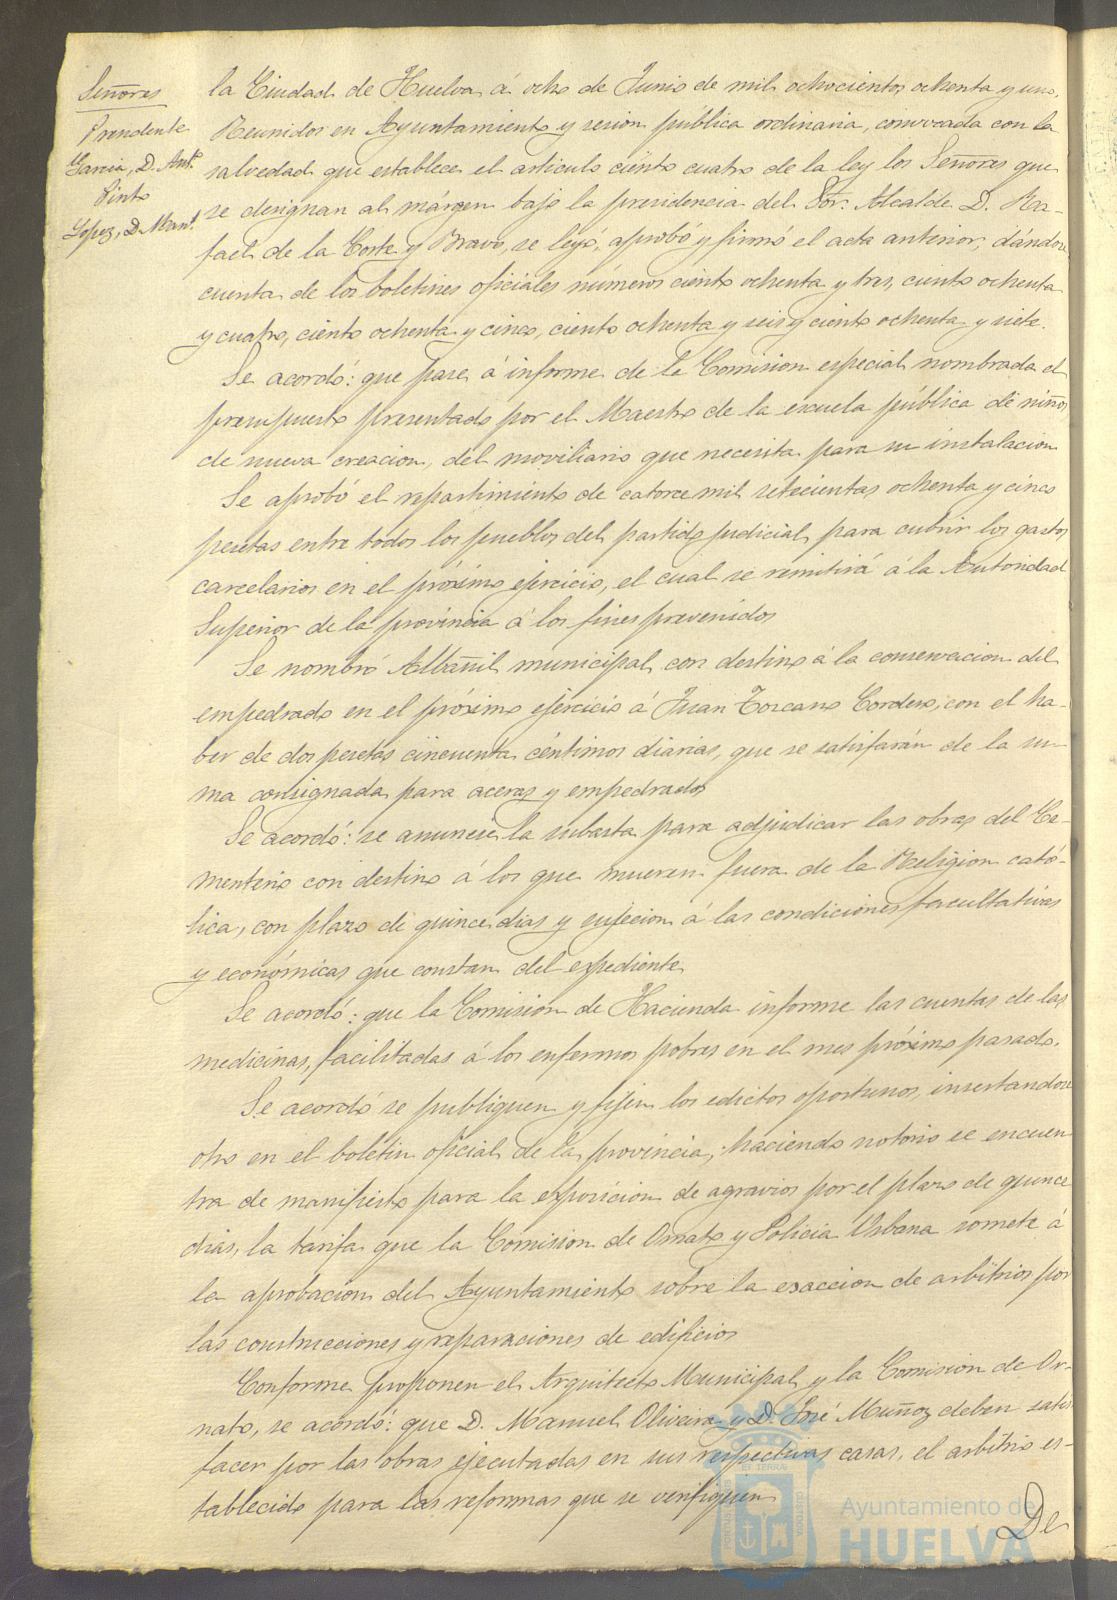 Señores
Presidente
Garcia, D. Antº
Pinto
Lopez, D. Manl
la Ciudad de Huelva á ocho de Junio de mil ochocientos ochenta y uno.
Reunidos en Ayuntamiento y sesion pública ordinaria, convocada con la
salvedad que establece el articulo ciento cuatro de la ley los Señores que
se designan al márgen bajo la presidencia del Sor. Alcalde D. Ra-
fael de la Corte y Bravo, se leyó, aprobó y firmó el acta anterior, dándose
cuenta de los boletines oficiales números ciento ochenta y tres, ciento ochenta
y cuatro, ciento ochenta y cinco, ciento ochenta y seis y ciento ochenta y siete.
Se acordó: que pase á informe de la Comision especial nombrada el
presupuesto presentado por el Maestro de la escuela pública de niños
de nueva creacion, del moviliario que necesita para su instalacion
Se aprobó el repartimiento de catorce mil setecientas ochenta y cinco
pesetas entre todos los pueblos del partido judicial para cubrir los gastos
carcelarios en el próximo ejercicio, el cual se remitirá á la Autoridad
Superior de la provincia á los fines prevenidos
Se nombró Albañil municipal con destino á la conservacion del
empedrado en el próximo ejercicio á Juan Toscano Cordero, con el ha-
ber de dos pesetas cincuenta céntimos diarias, que se satisfarán de la su-
ma consignada para aceras y empedrados
Se acordó: se anuncie la subasta para adjudicar las obras del Ce-
menterio con destino á los que mueren fuera de la Religion cató-
lica, con plazo de quince dias y sujecion á las condiciones facultativas
y económicas que constan del expediente
Se acordó: que la Comision de Hacienda informe las cuentas de las
medicinas facilitadas á los enfermos pobres en el mes próximo pasado.
Se acordó se publiquen y fijen los edictos oportunos, insertandose
otro en el boletin oficial de la provincia, haciendo notorio se encuen
tra de manifiesto para la exposicion de agravios por el plazo de quince
dias, la tarifa que la Comision de Ornato y Policia Urbana somete á
la aprobacion del Ayuntamiento sobre la exaccion de arbitrios por
las construcciones y reparaciones de edificios
Conforme proponen el Arquitecto Municipal y la Comision de Or-
nato, se acordó: que D. Manuel Oliveira y D. José Muñoz deben satis
facer por las obras ejecutadas en sus respectivas casas, el arbitrio es-
tablecido para las reformas que se verifiquen
De
Ayuntamiento de
HUELVA